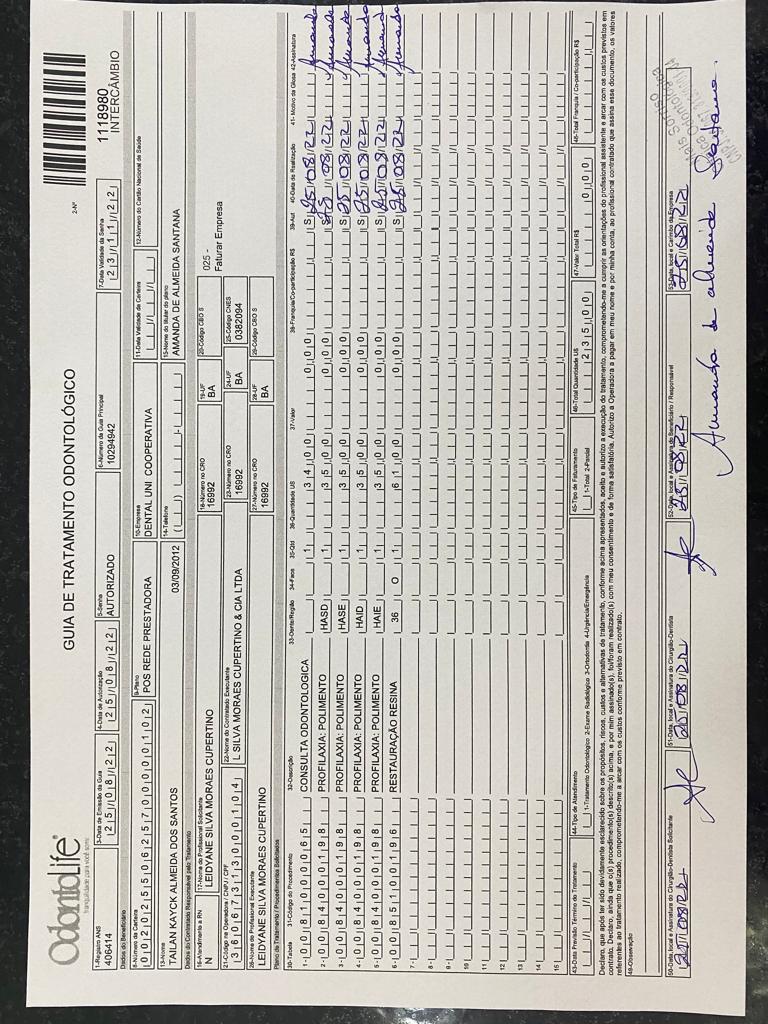 OdontoLife®
tranquilidade para você sorrir
GUIA DE TRATAMENTO ODONTOLÓGICO
2-Nº
1118980
INTERCÂMBIO
1-Registro ANS
406414
3-Data de Emissão da Guia
25/08/22
4-Data de Autorização
25/08/22
5-Senha
AUTORIZADO
6-Número da Guia Principal
10294942
7-Data Validade da Senha
23/11/22
Dados do Beneficiário
8-Número da Carteira
00202550625700000102
9-Plano
POS REDE PRESTADORA
10-Empresa
DENTAL UNI COOPERATIVA
11-Data Validade da Carteira
12-Número do Cartão Nacional de Saúde
13-Nome
TAILAN KAYCK ALMEIDA DOS SANTOS
03/09/2012
14-Telefone
15-Nome do titular do plano
AMANDA DE ALMEIDA SANTANA
Dados do Contratado Responsável pelo Tratamento
16-Atendimento a RN
N
17-Nome do Profissional Solicitante
LEIDYANE SILVA MORAES CUPERTINO
18-Número no CRO
16992
19-UF
BA
20-Código CBO S
025 -
Faturar Empresa
21-Código na Operadora / CNPJ / CPF
36067313000104
22-Nome do Contratado Executante
L SILVA MORAES CUPERTINO & CIA LTDA
23-Número no CRO
16992
24-UF
BA
25-Código CNES
0382094
26-Nome do Profissional Executante
LEIDYANE SILVA MORAES CUPERTINO
27-Número no CRO
16992
28-UF
BA
29-Código CBO S
Plano de Tratamento / Procedimentos Solicitados
30-Tabela 31-Código do Procedimento 32-Descrição 33-Dente/Região 34-Face 35-Qtd 36-Quantidade US 37-Valor 38-Franquia/Co-participação R$ 39-Aut 40-Data de Realização 41-Motivo da Glosa 42-Assinatura
1- 00 81000065 CONSULTA ODONTOLOGICA 1 34,00 0,00 S 25/08/22 Amanda
2- 00 84000198 PROFILAXIA: POLIMENTO HASD 1 35,00 0,00 S 25/08/22 Amanda
3- 00 84000198 PROFILAXIA: POLIMENTO HASE 1 35,00 0,00 S 25/08/22 Amanda
4- 00 84000198 PROFILAXIA: POLIMENTO HAID 1 35,00 0,00 S 25/08/22 Amanda
5- 00 84000198 PROFILAXIA: POLIMENTO HAIE 1 35,00 0,00 S 25/08/22 Amanda
6- 00 85100196 RESTAURAÇÃO RESINA 36 O 1 61,00 0,00 S 25/08/22 Amanda
7-
8-
9-
10-
11-
12-
13-
14-
15-
43-Data Previsão Término do Tratamento
44-Tipo de Atendimento
1-Tratamento Odontológico 2-Exame Radiológico 3-Ortodontia 4-Urgência/Emergência
45-Tipo de Faturamento
1-Total 2-Parcial
46-Total Quantidade US
235,00
47-Valor Total R$
0,00
48-Total Franquia / Co-participação R$
Declaro, que após ter sido devidamente esclarecido sobre os propósitos, riscos, custos e alternativas de tratamento, conforme acima apresentados, aceito e autorizo a execução do tratamento, comprometendo-me a cumprir as orientações do profissional assistente e arcar com os custos previstos em
contrato. Declaro, ainda que o(s) procedimento(s) descrito(s) acima, e por mim assinado(s), foi/foram realizado(s) com meu consentimento e de forma satisfatória. Autorizo a Operadora a pagar em meu nome e por minha conta, ao profissional contratado que assina esse documento, os valores
referentes ao tratamento realizado, comprometendo-me a arcar com os custos conforme previsto em contrato.
49-Observação
50-Data, local e Assinatura do Cirurgião-Dentista Solicitante
25/08/22
51-Data, local e Assinatura do Cirurgião-Dentista
25/08/22
52-Data, local e Assinatura do Beneficiário / Responsável
25/08/22
Amanda de almeida Santana.
53-Data, local e Carimbo da Empresa
25/08/22